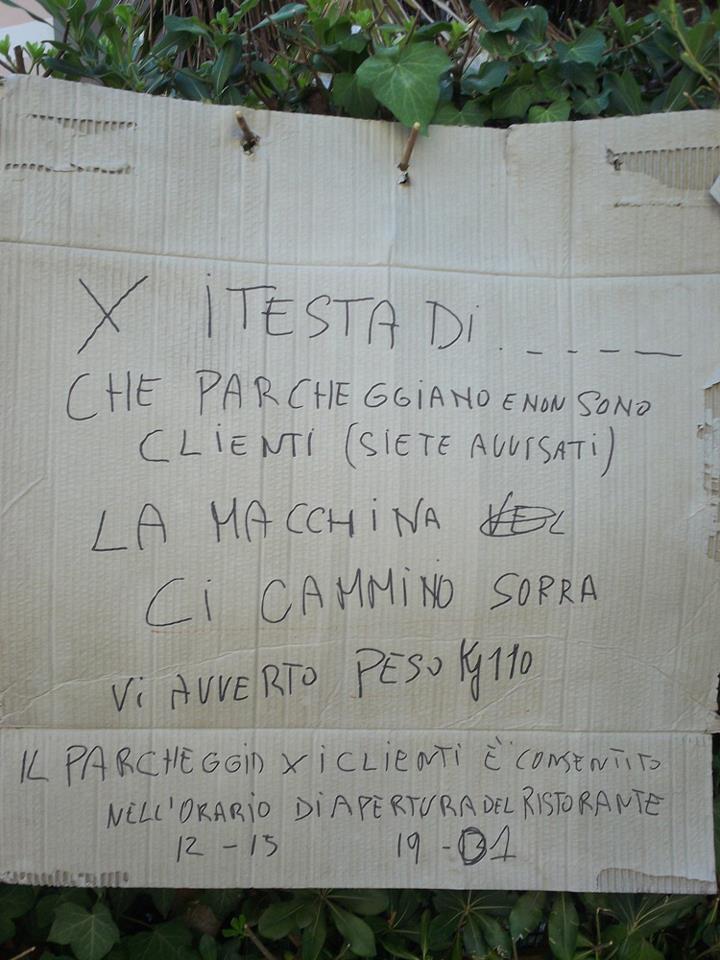 X i TESTA Di . _ _ _ _
CHE PARCHEGGiANO E NON SONO
CLiENTi (SiETE AVVISATi)
LA MACCHiNA
Ci CAMMiNO SOPRA
Vi AVVERTO PESO Kg 110
IL PARCHEGGiO X i CLiENTi È CONSENTITO
NELL'ORARiO Di APERTURA DEL RISTORANTE
12 - 15 19 - 01